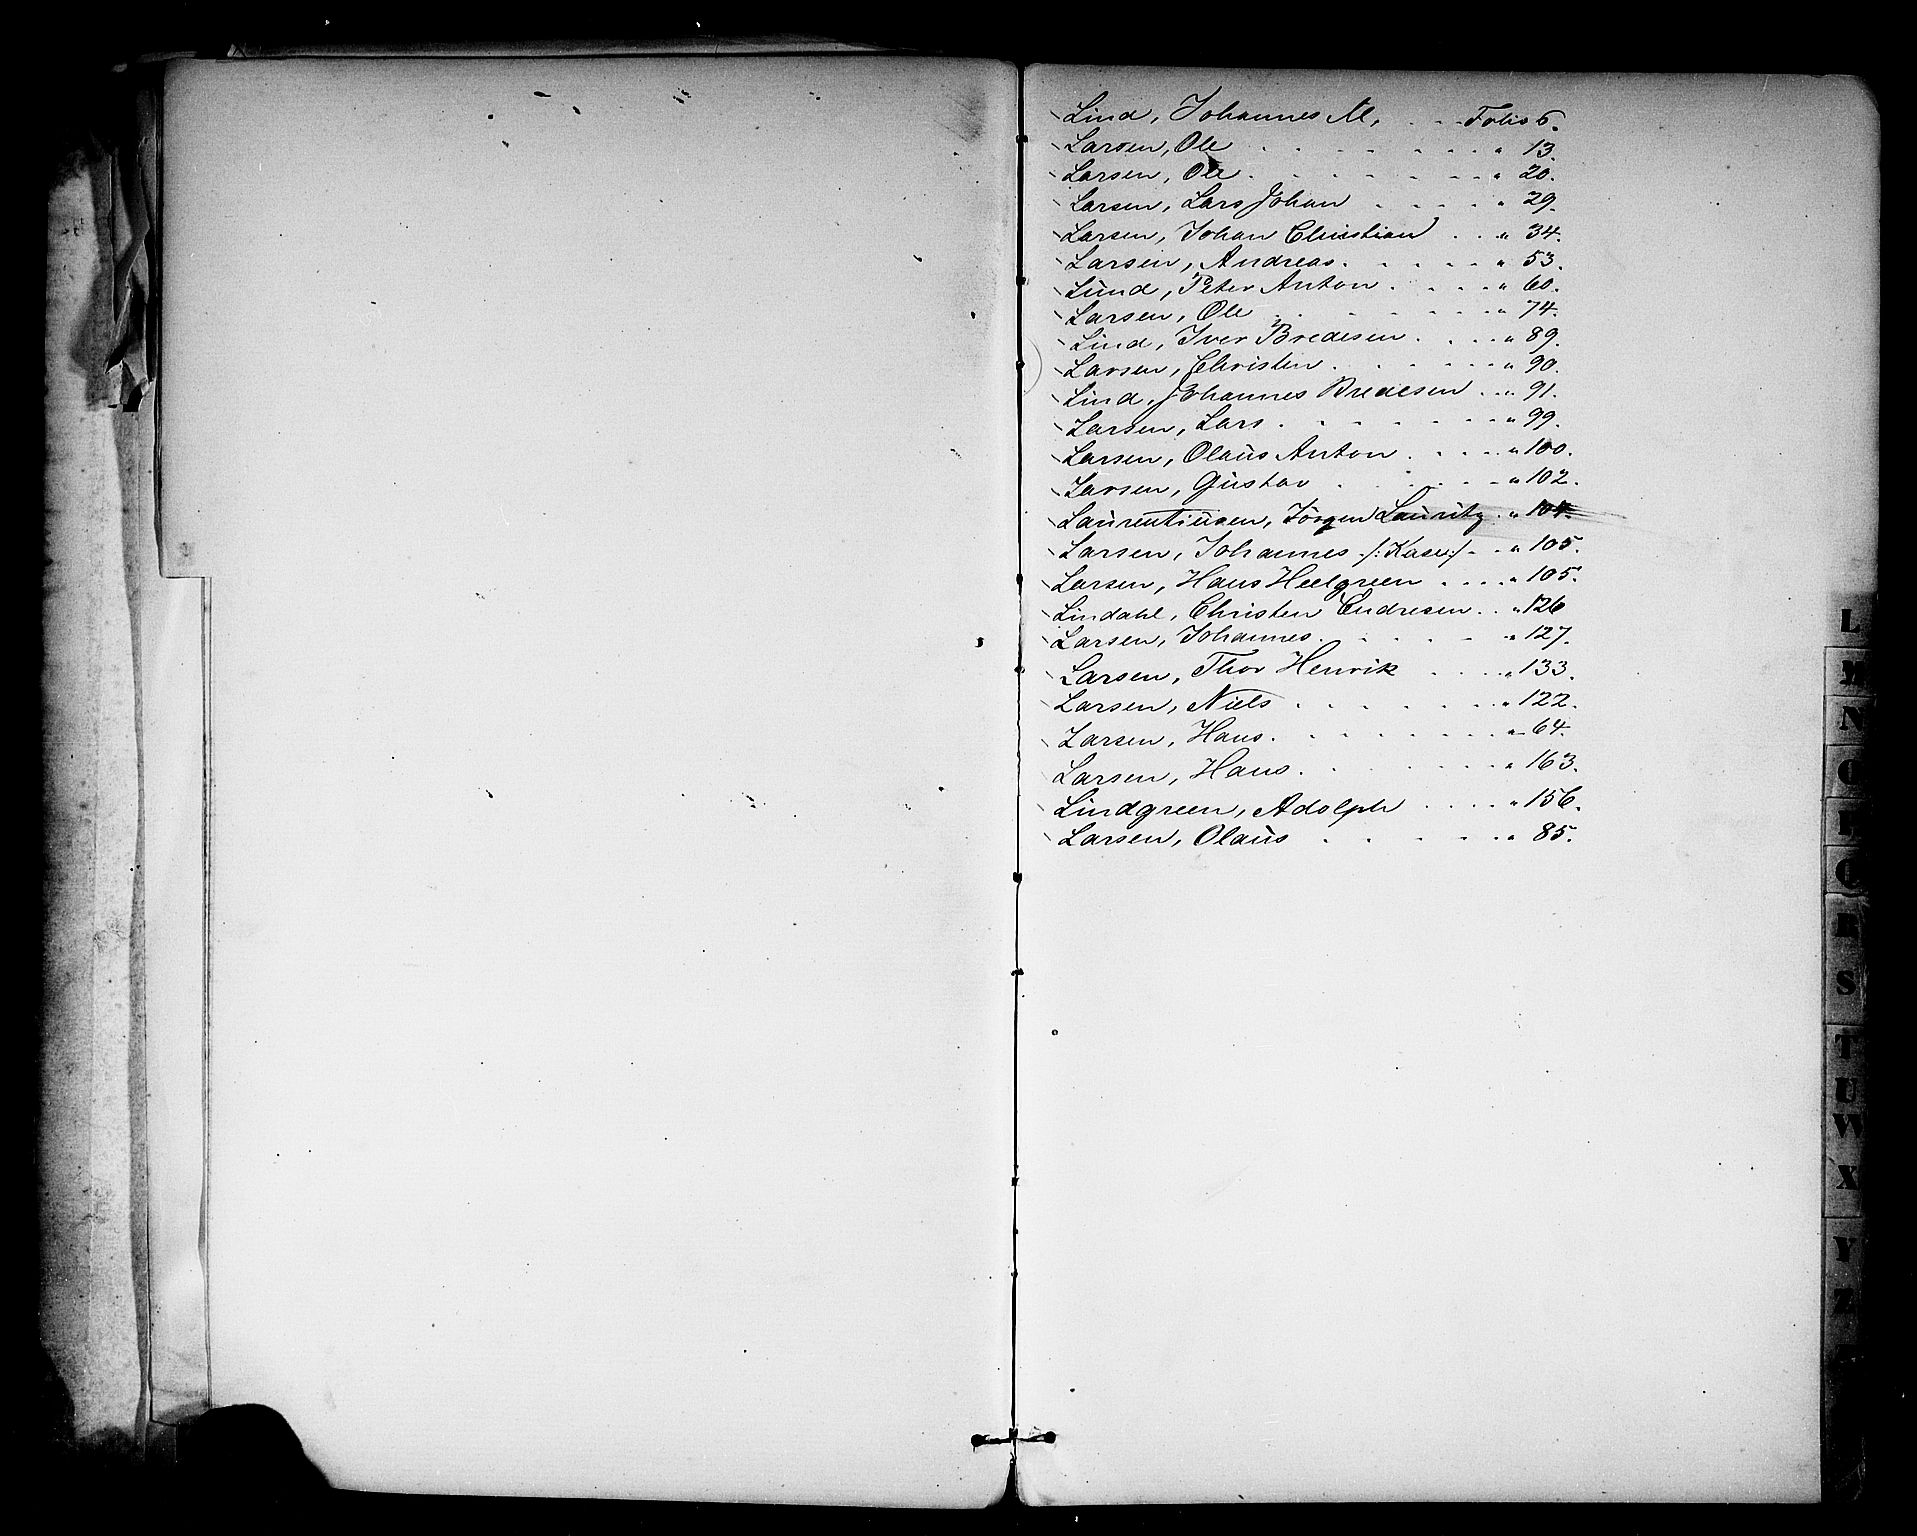 Lind, Johannes M, . . - Folio 5.
Larsen, Ole . . . . . . . . " 13.
Larsen, Ole . . . . . . - - " 20.
Larsen, Lars Johan . . . . " 29.
Larsen, Johan Christian . . " 34.
Larsen, Andreas . . . . . " 53.
Lund, Peter Anton . . . . " 60.
Larsen, Ole . . . . . . . " 74.
Lind, Iver Bredesen . . . . " 89.
Larsen, Christen . . . . . " 90.
Lind, Johannes Bredesen . . " 91.
Larsen, Lars . . . . . . . " 99.
Larsen, Olaus Anton . . . . " 100.
Larsen, Gustav . . . . . - " 102.
Laurentiusen, Jörgen Lauritz . " 104.
Larsen, Johannes /: Kasu:/ - . " 105.
Larsen, Hans Heelgreen . . . . " 105.
Lindahl, Christen Endresen . . " 126
Larsen, Johannes . . . . - " 127.
Larsen, Thor Henrik . . . . " 133.
Larsen, Niels . . . . . . " 122.
Larsen, Hans . . . . . . . " 64.
Larsen, Hans . . . . . . . " 163.
Lindgreen, Adolph . . . . " 156.
Larsen, Olaus . . . . . . " 85.
L
M
N
O
P
Q
R
S
T
U
W
X
Y